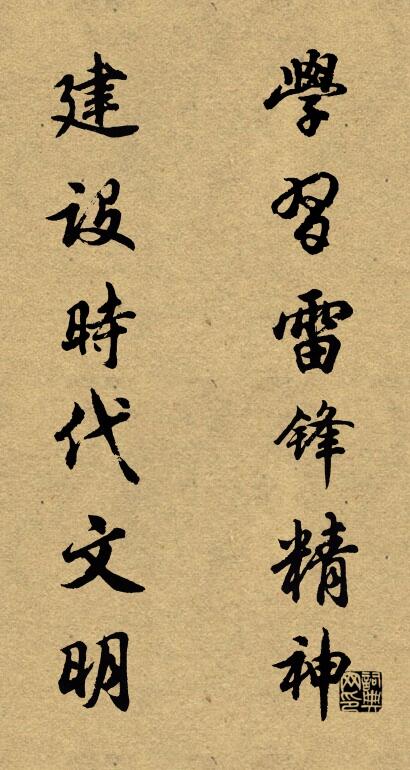 學習雷锋精神
建設時代文明
詞典網印